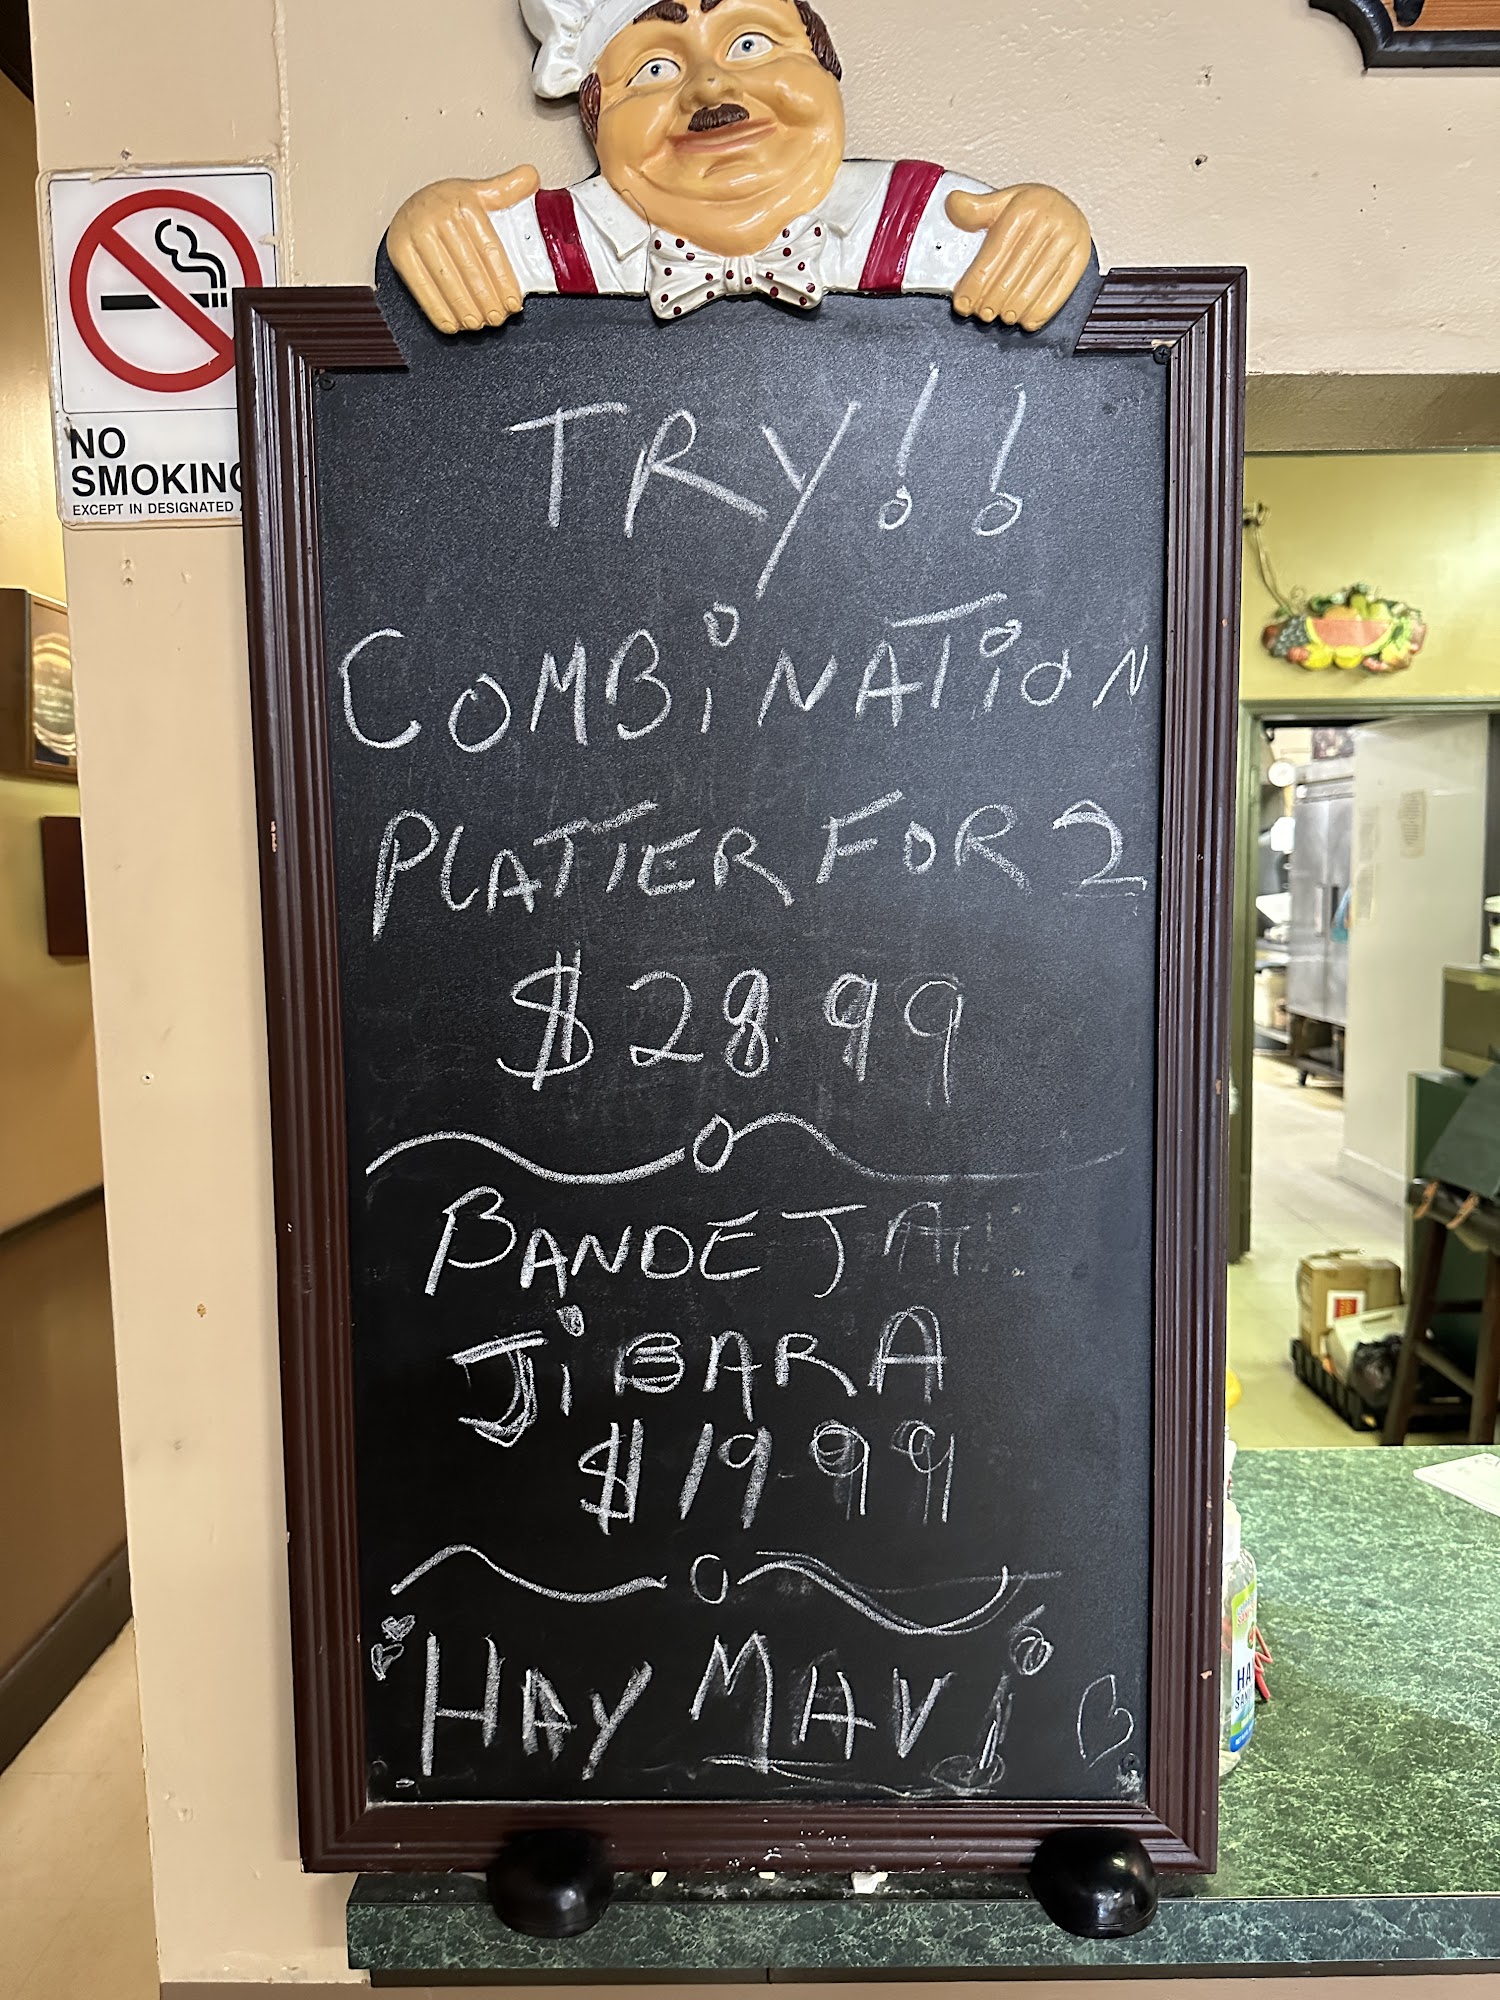 NO
SMOKING
EXCEPT IN DESIGNATED
TRY!!
COMBiNATiON
PLATTER FOR 2
$28.99
BANDEJA
JiBARA
$19.99
HAY MAVi
HA